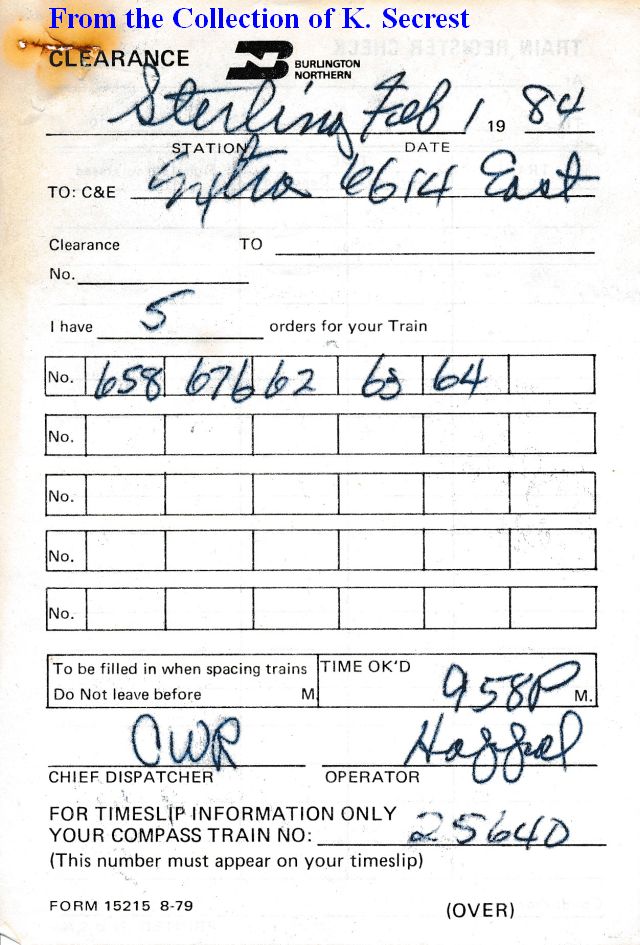 From the Collection of K. Secrest
CLEARANCE
BURLINGTON
NORTHERN
Sterling Feb 1 19 84
STATION DATE
TO: C&E Extra 6614 East
Clearance TO
No.
I have 5 orders for your Train
No. 658 676 62 63 64
No.
No.
No.
No.
To be filled in when spacing trains TIME OK'D
Do Not leave before M. 958P M.
CWR
CHIEF DISPATCHER OPERATOR
FOR TIMESLIP INFORMATION ONLY
YOUR COMPASS TRAIN NO: 25640
(This number must appear on your timeslip)
FORM 15215 8-79 (OVER)